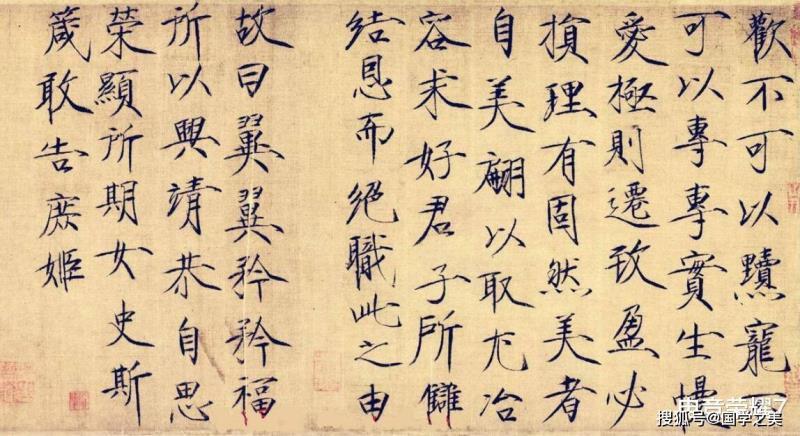 歡不可以黷寵
可以專專實生慢
愛極則遷致盈必
損理有固然美者
自美翩以取尤冶
容求好君子所讎
結恩而絕職此之由
故曰翼翼矜矜福
所以興靖恭自思
榮顯所期女史斯
箴敢告庶姬
音荣耀7
搜狐号@国学之美